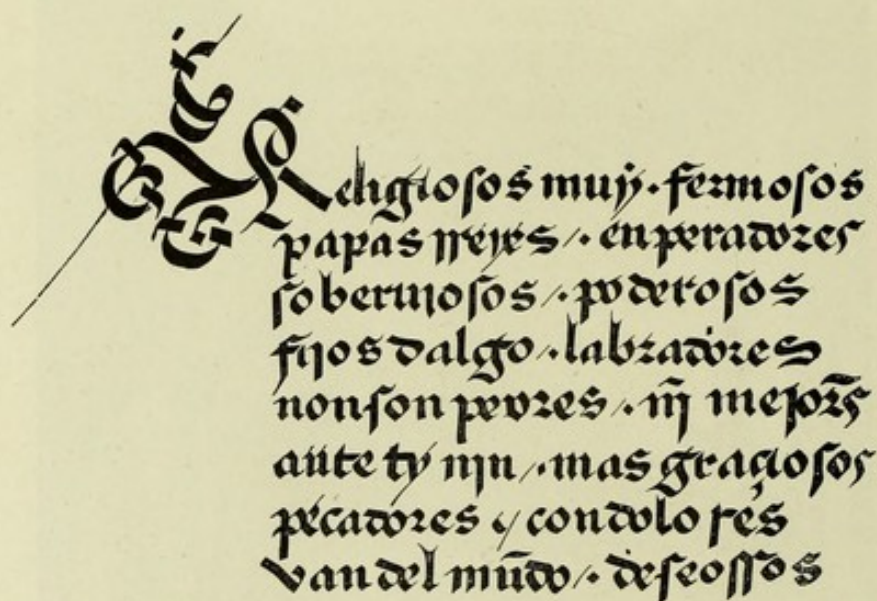 Religiosos muy · fermosos
papas rreyes /· enperadores
soberuiosos /· poderosos
fijos dalgo /· labradores
non son peores /· nĩ mejorẽs
ante ty nin /· mas graçiosos
pecadores y con dolores
van del mũdo /· deseossos